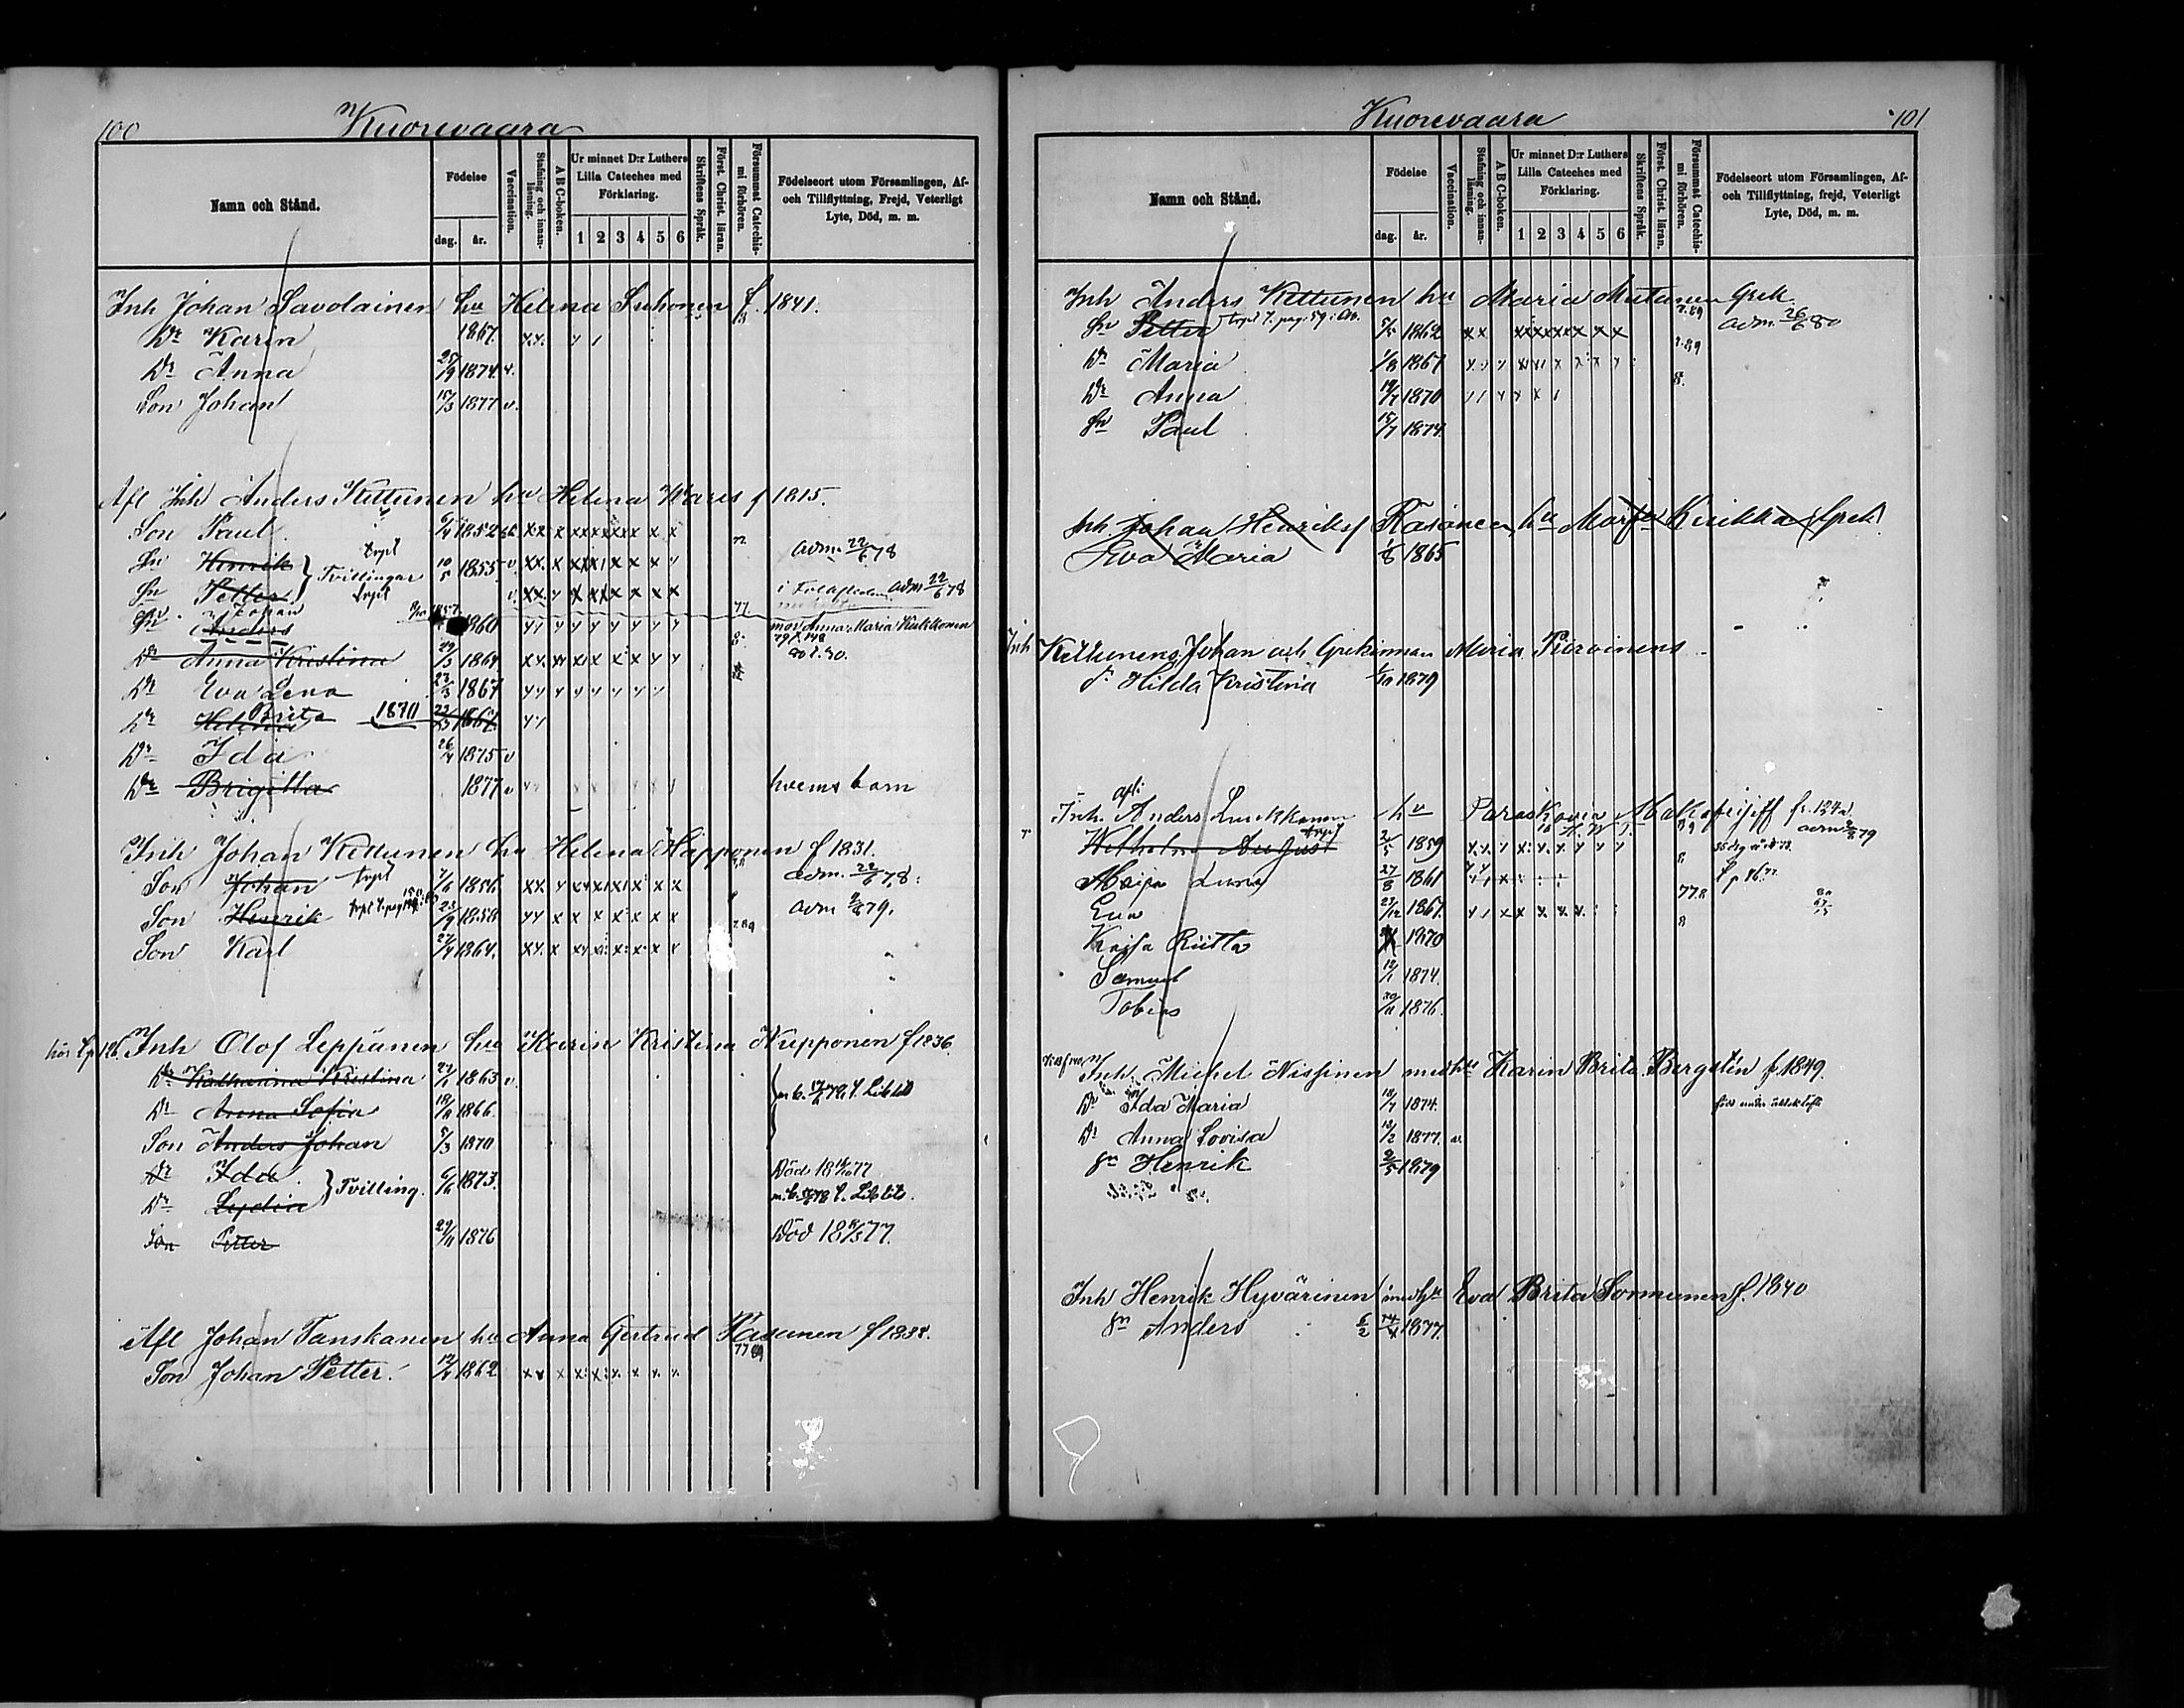 100
Kuorevaara
Namn och Stånd.
Födelse
dag.
år.
Vaccination.
Stafning och innanläsning.
A B C-boken.
Ur minnet D:r Luthers Lilla Cateches med Förklaring.
1 2 3 4 5 6
Skriftens Språk.
Först. Christ. läran.
Försummat Catechismi förhören.
Födelseort utom Församlingen, Af- och Tillflyttning, Frejd, Veterligt Lyte, Död, m. m.
Inh Johan Savolainen hu Helena Suhonen f. 1841.
Dr Karin 1867.
Dr Anna 25/9 1874. v.
Son Johan 15/3 1877 v.
Afl Inh Anders Kettunen hu Helena Kares f 1815.
Son Paul 1852
Sn Henrik } Tvillingar 10/5 1855 v. adm. 22/6 78
Sn Petter adm 22/6 78
Sn Johan 1857
Anders 1860 mor Anna Maria Kukkonen
Dr Anna Kristina 1864
Dr Eva Lena 23/3 1867
Dr Helena Brita 1870 1867
Dr Ida 26/4 1875 v
Dr Brigitta 1877 v hvems barn
Inh Johan Kettunen hu Helena Happonen f 1831.
Son Johan 7/6 1856 adm. 22/6 78.
Son Henrik 23/9 1858 adm 79.
Son Karl 27/4 1864.
Inh Olof Leppänen hu Karin Kristina Nupponen f 1836.
Dr Katharina Kristina 1863 v.
Dr Anna Sofia 18/11 1866.
Son Anders Johan 5/3 1870
Dr Ida } Tvilling. 6/6 1873. Död 18 77
Dr Lydia
Son Petter 29/11 1876 Död 18 77.
Afl Johan Tanskanen hu Anna Gertrud Kasanen f 1838.
Son Johan Petter. 12/7 1862
101
Kuorevaara
Namn och Stånd.
Födelse
dag.
år.
Vaccination.
Stafning och innanläsning.
A B C-boken.
Ur minnet D:r Luthers Lilla Cateches med Förklaring.
1 2 3 4 5 6
Skriftens Språk.
Först. Christ. läran.
Försummat Catechismi förhören.
Födelseort utom Församlingen, Af- och Tillflyttning, frejd, Veterligt Lyte, Död, m. m.
Inh Anders Kettunen hu Maria Mutanen Grek.
Sn Petter 1862 adm. 26/6 80
Dr Maria 1/8 1867
Dr Anna 19/7 1870
Sn Paul 15/7 1874.
Inh. Johan Henrikss Räsänen, hu Marfa Kirikka Grek
Eva Maria 1865
Inh Kettunens Johan och Grekinnan Maria Piiroinens
d. Hilda Kristina 1879
afl:
Inh. Anders Luukkanen hu Paraskovia
Wilhelm August 1859 adm 79
Maija Leena 27/8 1861
Eva 27/12 1867.
Kajsa Riitta 1870
Samuel 12/1 1874.
Tobias 1876.
Inh. Michel Nissinen med hu Karin Brita Bergstén f. 1849.
Dr Ida Maria 18/7 1874.
Dr Anna Lovisa 13/2 1877. v.
Sn Henrik 2/5 1879
Inh Henrik Hyvärinen med hu Eva Brita Sormunen f. 1840
Sn Anders 1877.